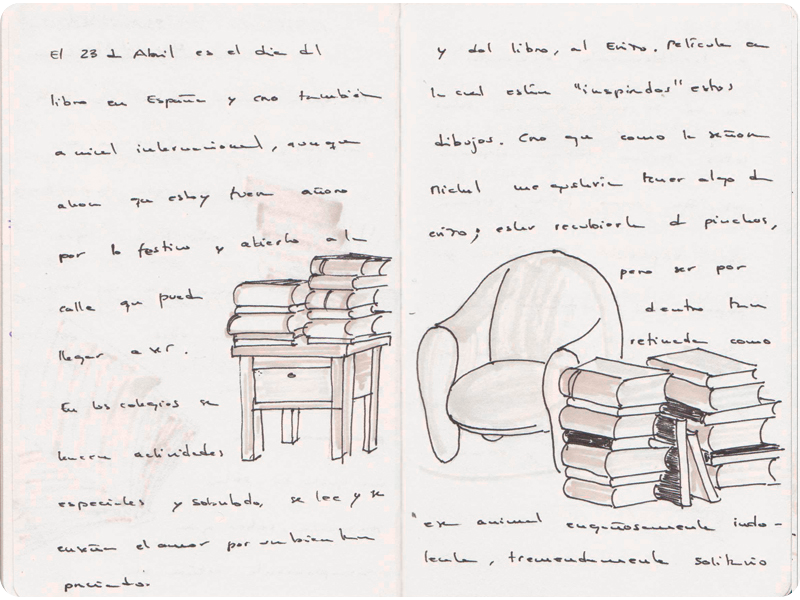 El 23 d Abril es el dia dl
libro en España y creo también
a nivel internacional, aunque
ahora que estoy fuera añoro
por lo festivo y abierto a la
calle que puede
llegar a ser.
En los colegios se
hacen actividades
especiales y sobretodo, se lee y se
enseña el amor por un bien tan
preciado.
y dol libro, al Erizo. Película en
la cual están "inspirados" estos
dibujos. Creo que como la señora
Michel me gustaría tener algo d
erizo; estar recubierta d pinchos,
pero ser por
dentro tan
refinada como
"ese animal engañosamente indo-
lente, tremendamente solitario